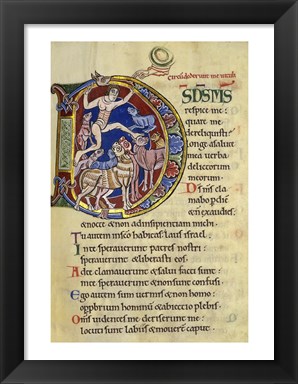 Circundederunt me vituli
D S̄ D̄S M̄S
respice me:
quare me
dereliquisti:
longe a salute
mea verba
delictorum
meorum.
D̄s m̄s cla
mabo p diē &
n̄ exaudies:
& nocte & non ad insipientiam michi.
Tu autem in sc̄o habitas laus israel.
In te speraverunt patres nostri:
speraverunt & liberasti eos.
Ad te clamaverunt & salvi facti sunt:
in te speraverunt & non sunt confusi.
Ego autem sum vermis & non homo:
opprobrium hominū & abiectio plebis.
Om̄s videntes me deriserunt me:
locuti sunt labiis & moverunt caput.